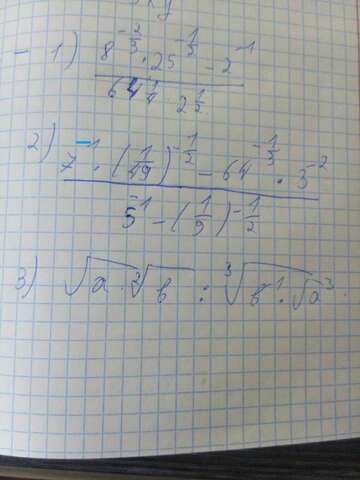 - 1) 8^{-2/3} · 25^{-1/3} - 2^{-1}
64^{1/4} 2^{1/2}
2) 7^{-1} · (1/49)^{-1/2} - 64^{-1/3} · 3^{-2}
5^{-1} - (1/9)^{-1/2}
3) √(a · ∛b) : ∛(b^{-1} · √a^3)